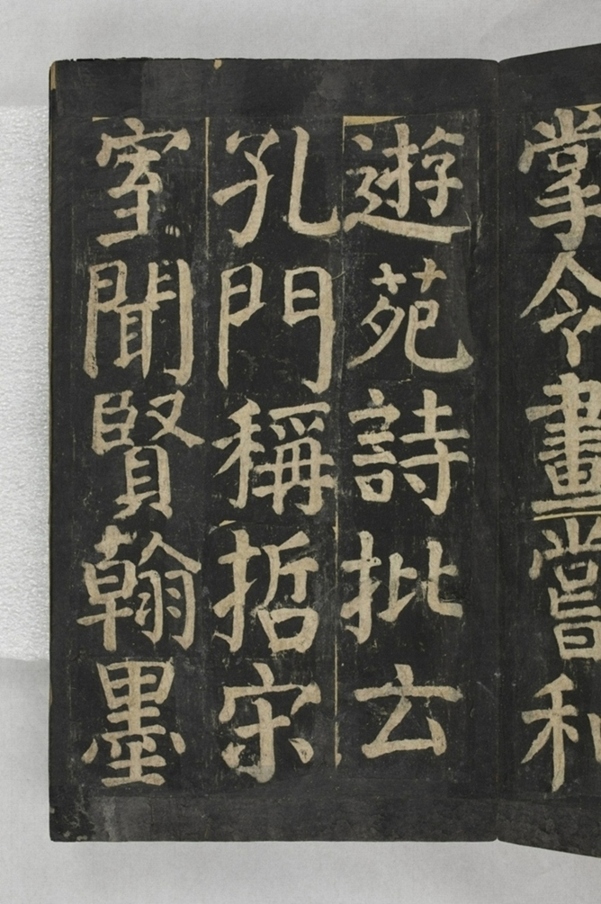 掌令畫嘗和
遊苑詩批云
孔門稱哲宋
室聞賢翰墨